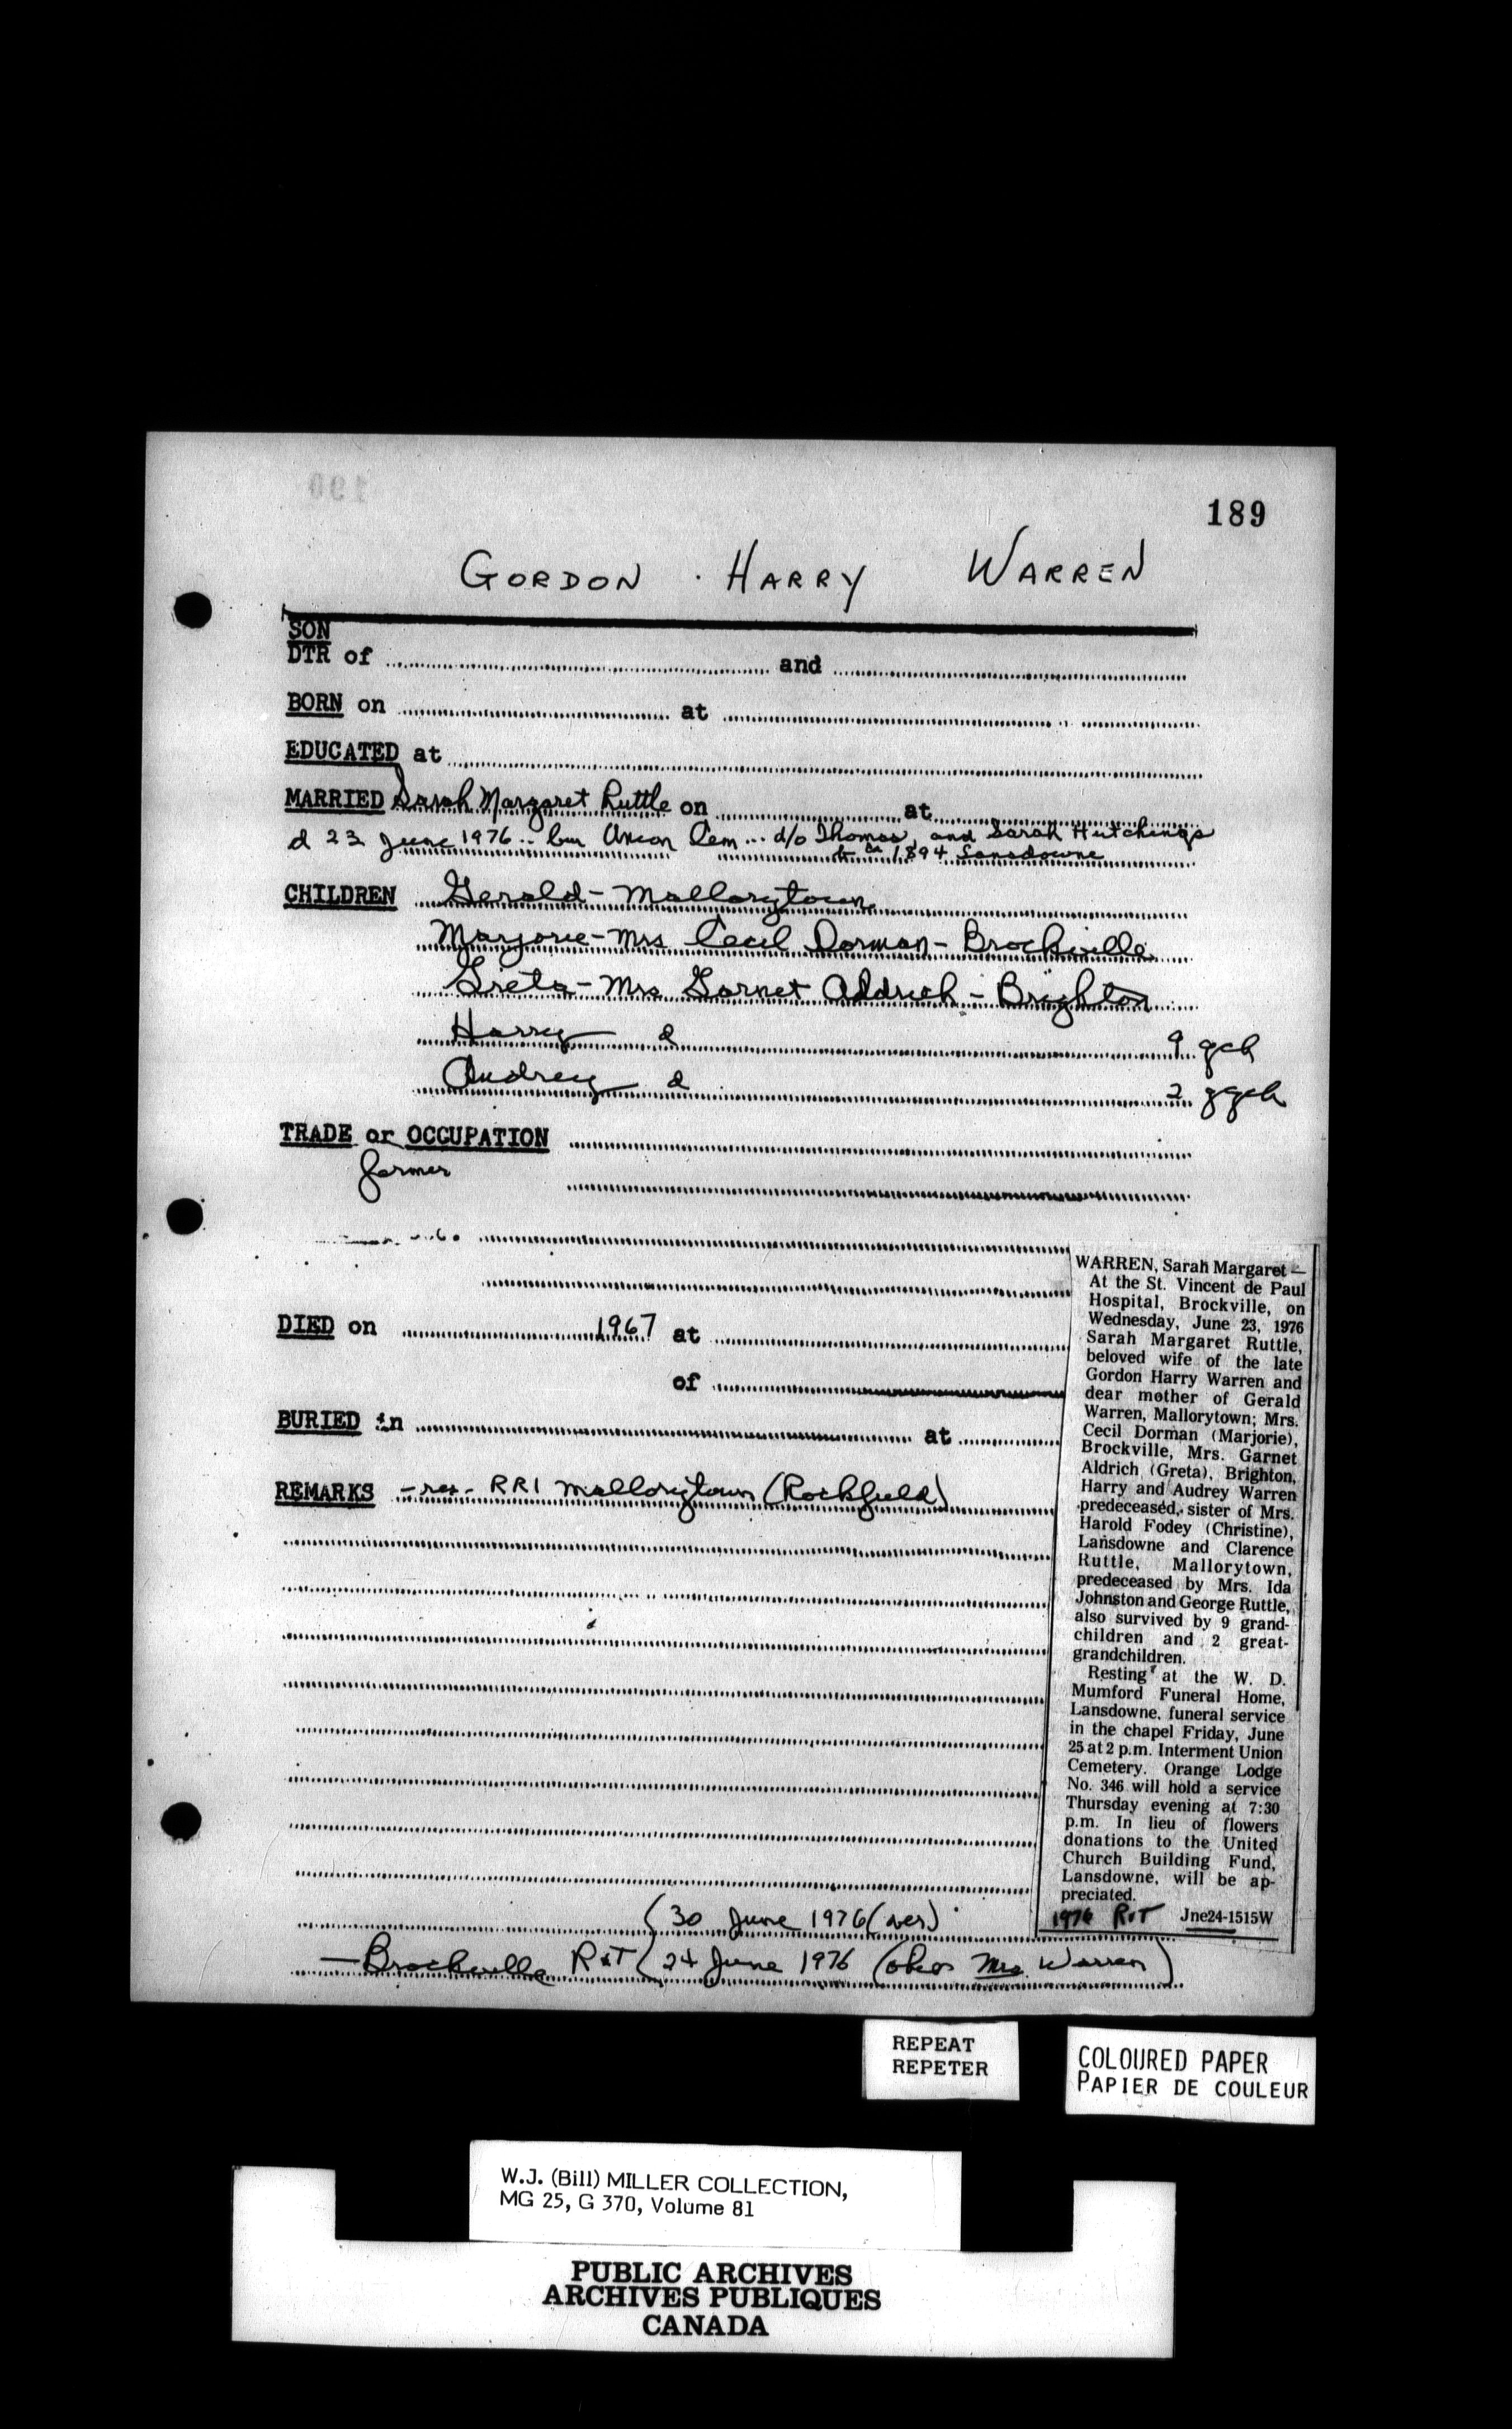 189
GORDON HARRY WARREN
SON
DTR of and
BORN on at
EDUCATED at
MARRIED Sarah Margaret Ruttle on at
d 23 June 1976 .. bur Union Cem ... d/o Thomas and Sarah Hutchings
b ca 1894 Lansdowne
CHILDREN Gerald - Mallorytown
Marjorie - Mrs Cecil Dorman - Brockville
Greta - Mrs Garnet Aldrich - Brighton
Harry d 9 gch
Audrey d 2 ggch
TRADE or OCCUPATION
farmer
DIED on 1967 at
of
BURIED in at
REMARKS - res - RR1 Mallorytown (Rockfield)
WARREN, Sarah Margaret —
At the St. Vincent de Paul
Hospital, Brockville, on
Wednesday, June 23, 1976
Sarah Margaret Ruttle,
beloved wife of the late
Gordon Harry Warren and
dear mother of Gerald
Warren, Mallorytown; Mrs.
Cecil Dorman (Marjorie),
Brockville, Mrs. Garnet
Aldrich (Greta), Brighton,
Harry and Audrey Warren
predeceased, sister of Mrs.
Harold Fodey (Christine),
Lansdowne and Clarence
Ruttle, Mallorytown,
predeceased by Mrs. Ida
Johnston and George Ruttle,
also survived by 9 grand-
children and 2 great-
grandchildren.
Resting at the W. D.
Mumford Funeral Home,
Lansdowne, funeral service
in the chapel Friday, June
25 at 2 p.m. Interment Union
Cemetery. Orange Lodge
No. 346 will hold a service
Thursday evening at 7:30
p.m. In lieu of flowers
donations to the United
Church Building Fund,
Lansdowne, will be ap-
preciated.
1976 R&T Jne24-1515W
(30 June 1976
— Brockville R&T (24 June 1976 (obit Mrs Warren)
REPEAT
REPETER
COLOURED PAPER
PAPIER DE COULEUR
W.J. (Bill) MILLER COLLECTION,
MG 25, G 370, Volume 81
PUBLIC ARCHIVES
ARCHIVES PUBLIQUES
CANADA